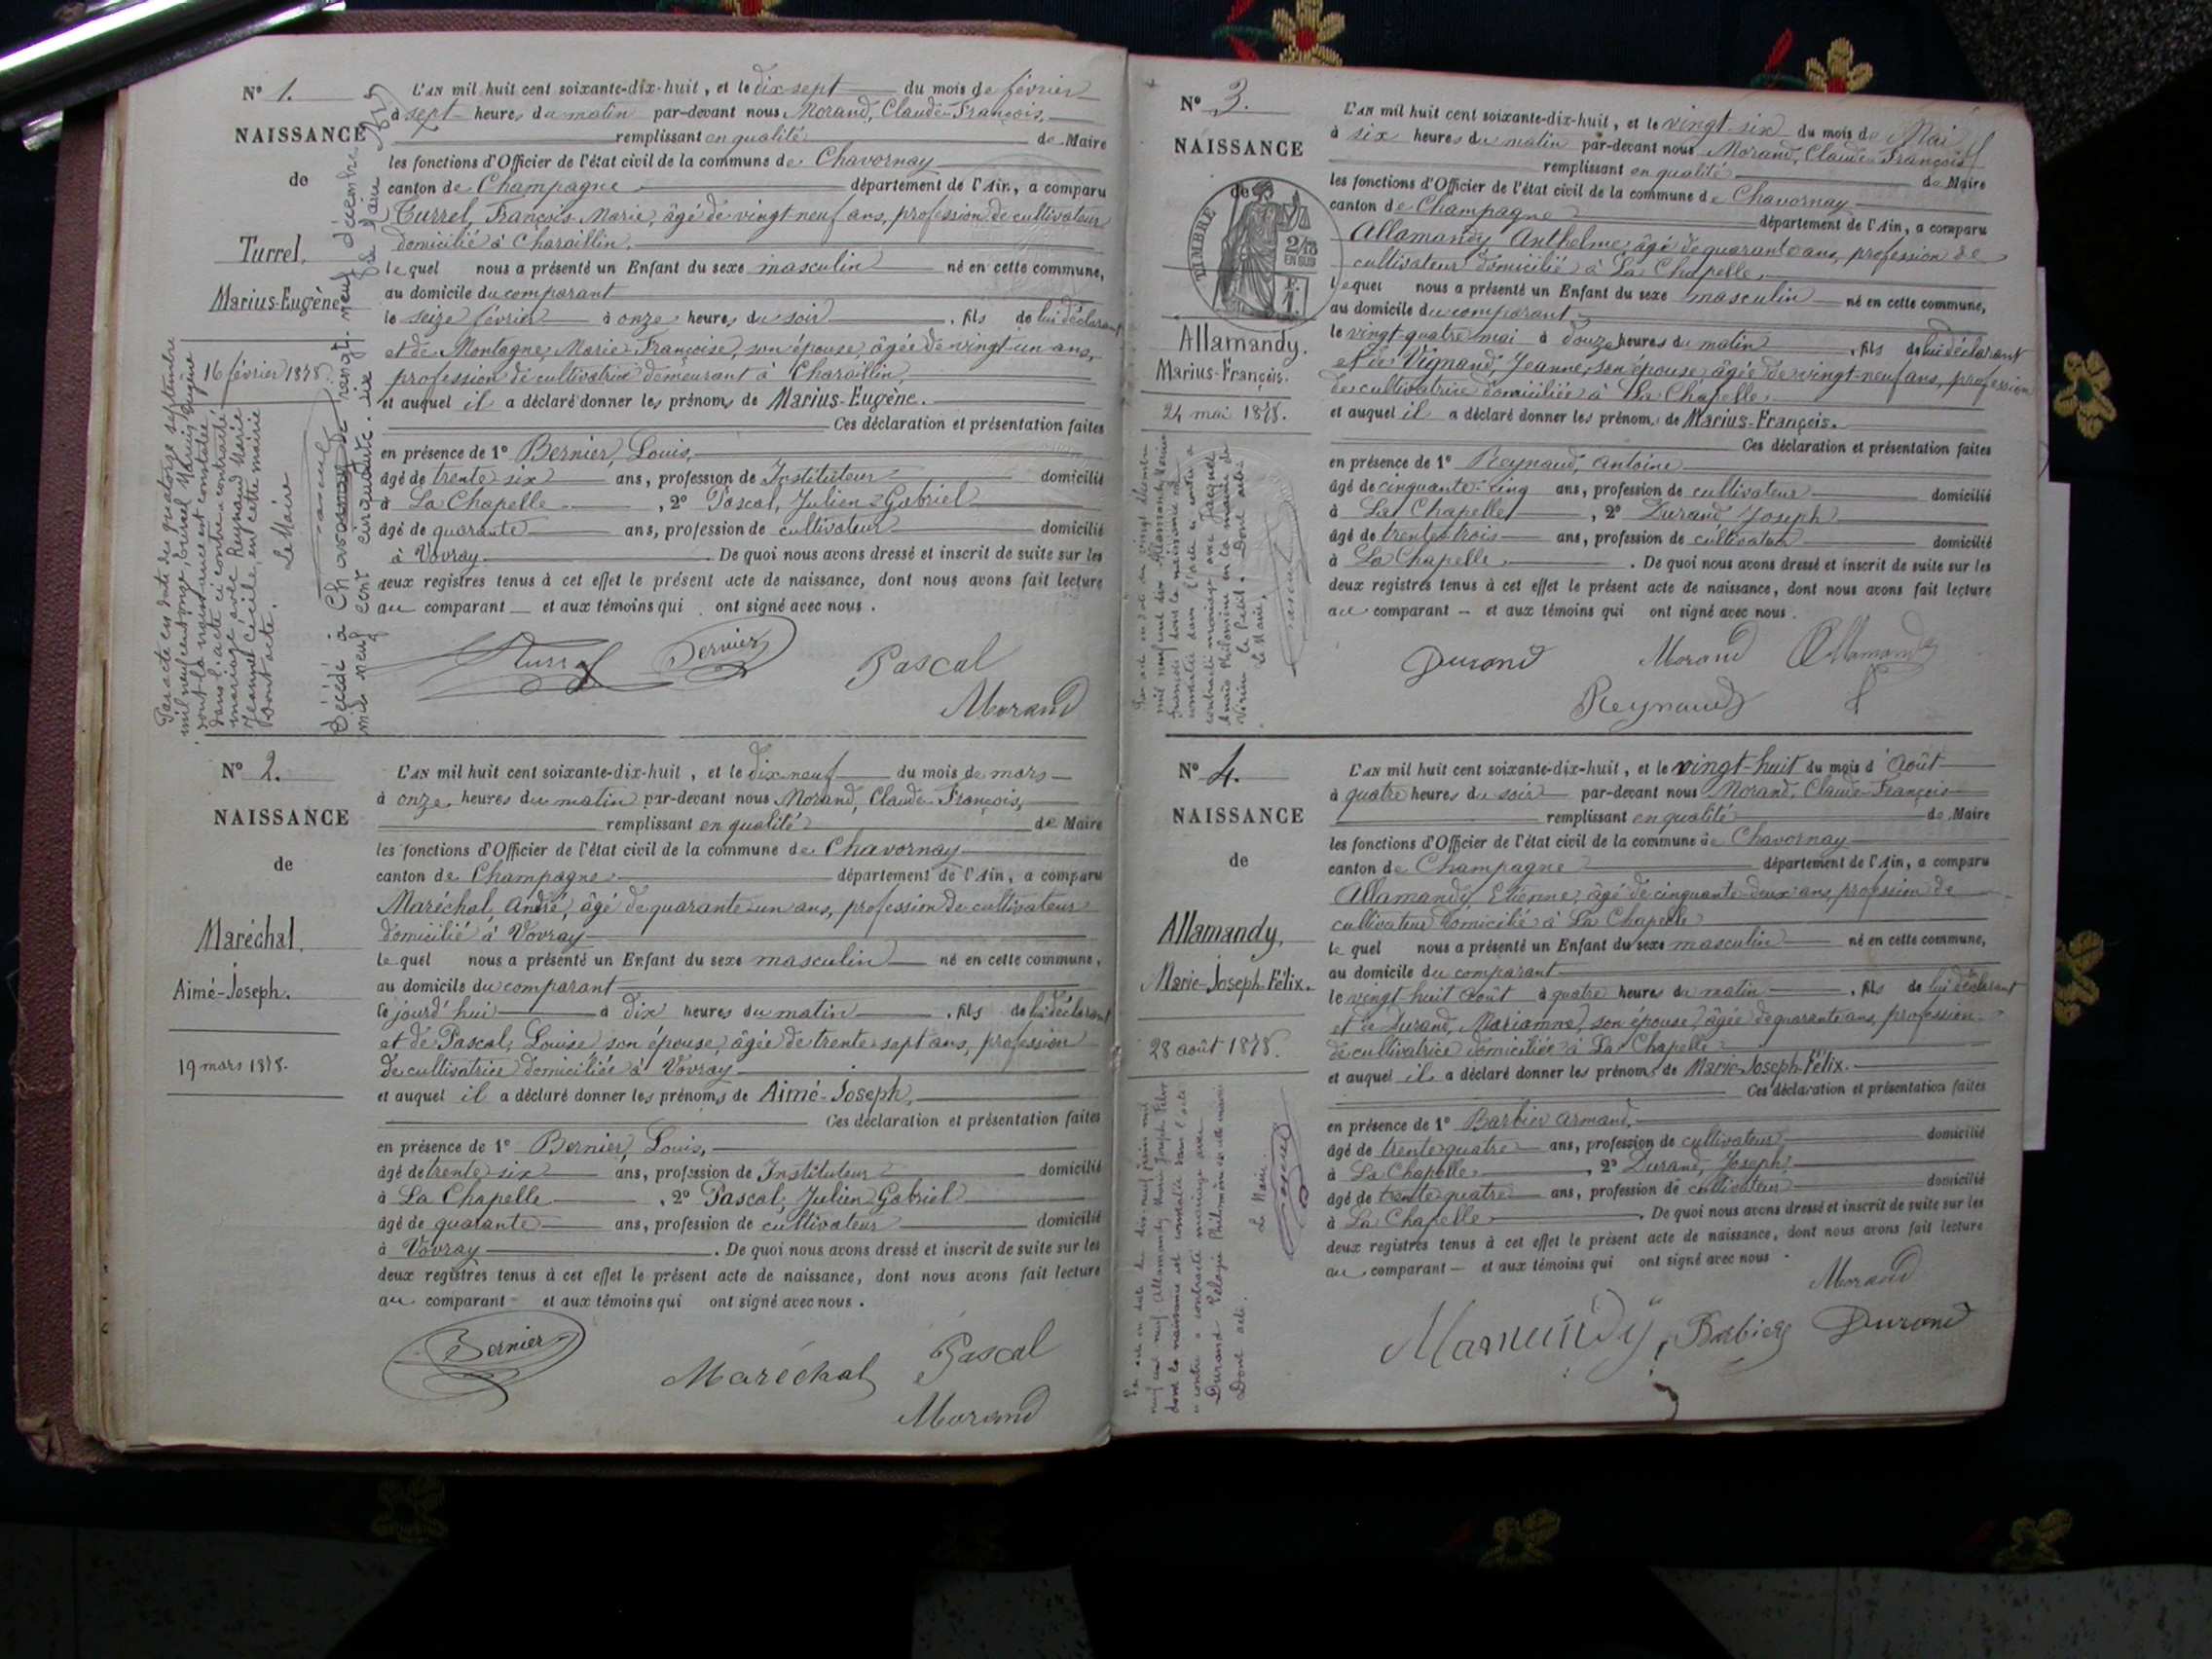 N° 1.
NAISSANCE
de
Turrel,
Marius-Eugène
16 février 1878.
Par acte en date du quatorze septembre
mil neuf cent onze, Turrel Marius Eugène
dont la naissance est constatée
dans l'acte ci contre a contracté
mariage avec Reynaud Marie
Jeanne Cécile, en cette mairie
Dont acte.
Le Maire
Décédé à Chavornay le vingt-neuf décembre
mil neuf cent cinquante-six
L'AN mil huit cent soixante-dix-huit, et le dix sept du mois de février
à sept heures du matin par-devant nous Morand, Claude-François,
remplissant en qualité de Maire
les fonctions d'Officier de l'état civil de la commune de Chavornay
canton de Champagne département de l'Ain, a comparu
Turrel, François-Marie, âgé de vingt-neuf ans, profession de cultivateur
domicilié à Charaillin.
lequel nous a présenté un Enfant du sexe masculin né en cette commune,
au domicile du comparant
le seize février à onze heures du soir, fils de lui déclarant
et de Montagne, Marie-Françoise, son épouse, âgée de vingt-un ans,
profession de cultivatrice demeurant à Charaillin,
et auquel il a déclaré donner les prénoms de Marius-Eugène.
Ces déclaration et présentation faites
en présence de 1° Bernier, Louis,
âgé de trente six ans, profession de Instituteur domicilié
à La Chapelle, 2° Pascal, Julien-Gabriel
âgé de quarante ans, profession de cultivateur domicilié
à Vovray. De quoi nous avons dressé et inscrit de suite sur les
deux registres tenus à cet effet le présent acte de naissance, dont nous avons fait lecture
au comparant et aux témoins qui ont signé avec nous.
Turrel Bernier Pascal
Morand
N° 2.
NAISSANCE
de
Maréchal,
Aimé-Joseph.
19 mars 1878.
L'AN mil huit cent soixante-dix-huit, et le dix neuf du mois de mars
à onze heures du matin par-devant nous Morand, Claude-François,
remplissant en qualité de Maire
les fonctions d'Officier de l'état civil de la commune de Chavornay
canton de Champagne département de l'Ain, a comparu
Maréchal, André, âgé de quarante-un ans, profession de cultivateur
domicilié à Vovray
lequel nous a présenté un Enfant du sexe masculin né en cette commune,
au domicile du comparant
le jourd'hui à dix heures du matin, fils de lui déclarant
et de Pascal, Louise son épouse, âgée de trente sept ans, profession
de cultivatrice domiciliée à Vovray
et auquel il a déclaré donner les prénoms de Aimé-Joseph,
Ces déclaration et présentation faites
en présence de 1° Bernier, Louis,
âgé de trente six ans, profession de Instituteur domicilié
à La Chapelle, 2° Pascal, Julien Gabriel
âgé de quarante ans, profession de cultivateur domicilié
à Vovray. De quoi nous avons dressé et inscrit de suite sur les
deux registres tenus à cet effet le présent acte de naissance, dont nous avons fait lecture
au comparant et aux témoins qui ont signé avec nous.
Bernier Maréchal Pascal
Morand
N° 3.
NAISSANCE
de
TIMBRE
2/10
EN SUS
Allamandy.
Marius-François.
24 mai 1878.
mil neuf cent dix Allamandy Marius
François dont la naissance est
constatée dans l'acte ci contre a
contracté mariage avec Jacquet
Anaïs Philomène en la mairie de
Virieu le Petit. Dont acte.
Le Maire,
L'AN mil huit cent soixante-dix-huit, et le vingt six du mois de Mai
à six heures du matin par-devant nous Morand, Claude François
remplissant en qualité de Maire
les fonctions d'Officier de l'état civil de la commune de Chavornay
canton de Champagne département de l'Ain, a comparu
Allamandy Anthelme, âgé de quarante ans, profession de
cultivateur domicilié à La Chapelle,
lequel nous a présenté un Enfant du sexe masculin né en cette commune,
au domicile du comparant,
le vingt-quatre mai à douze heures du matin, fils de lui déclarant
et de Vignand, Jeanne, son épouse âgée de vingt-neuf ans, profession
de cultivatrice domiciliée à La Chapelle,
et auquel il a déclaré donner les prénoms de Marius-François.
Ces déclaration et présentation faites
en présence de 1° Reynaud, Antoine
âgé de cinquante-cinq ans, profession de cultivateur domicilié
à La Chapelle, 2° Durand Joseph
âgé de trente-trois ans, profession de cultivateur domicilié
à La Chapelle. De quoi nous avons dressé et inscrit de suite sur les
deux registres tenus à cet effet le présent acte de naissance, dont nous avons fait lecture
au comparant et aux témoins qui ont signé avec nous.
Durand Morand Allamandy
Reynaud
N° 4.
NAISSANCE
de
Allamandy,
Marie-Joseph-Félix.
28 août 1878.
neuf cent neuf Allamandy Marie Joseph Félix
dont la naissance est constatée dans l'acte
ci contre a contracté mariage avec
Durand Pélagie Philomène en cette mairie
Dont acte.
Le Maire
L'AN mil huit cent soixante-dix-huit, et le vingt-huit du mois d'Août
à quatre heures du soir par-devant nous Morand, Claude-François
remplissant en qualité de Maire
les fonctions d'Officier de l'état civil de la commune de Chavornay
canton de Champagne département de l'Ain, a comparu
Allamandy, Etienne, âgé de cinquante-deux ans, profession de
cultivateur domicilié à La Chapelle
lequel nous a présenté un Enfant du sexe masculin né en cette commune,
au domicile du comparant
le vingt huit Août à quatre heures du matin, fils de lui déclarant
et de Durand, Mariamne, son épouse, âgée de quarante ans, profession
de cultivatrice domiciliée à La Chapelle
et auquel il a déclaré donner les prénoms de Marie-Joseph-Félix.
Ces déclaration et présentation faites
en présence de 1° Barbier Armand,
âgé de trente quatre ans, profession de cultivateur domicilié
à La Chapelle, 2° Durand, Joseph
âgé de trente quatre ans, profession de cultivateur domicilié
à La Chapelle. De quoi nous avons dressé et inscrit de suite sur les
deux registres tenus à cet effet le présent acte de naissance, dont nous avons fait lecture
au comparant et aux témoins qui ont signé avec nous.
Morand
Barbier Durand